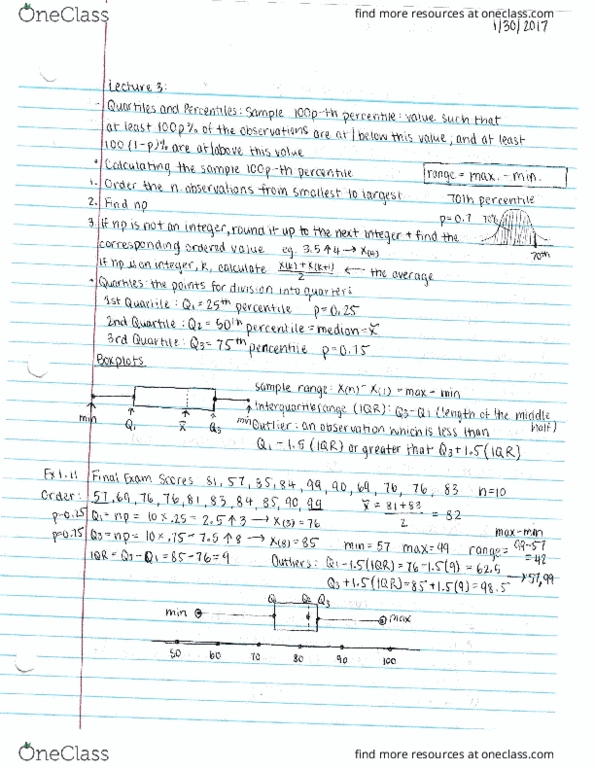 OneClass
find more resources at oneclass.com
1/30/2017
Lecture 3:
- Quartiles and Percentiles: Sample 100p-th percentile: value such that
at least 100p% of the observations are at/below this value, and at least
100(1-p)% are at/above this value
• Calculating the sample 100p-th percentile
range = max. - min.
1. Order the n observations from smallest to largest
70th percentile
2. Find np
p=0.7 70%
3. If np is not an integer, round it up to the next integer + find the
corresponding ordered value eg. 3.5↑4 → X(4)
70th
If np is an integer, k, calculate X(k)+X(k+1)/2 ← the average
• Quartiles: the points for division into quarters
1st Quartile: Q₁ = 25th percentile p=0.25
2nd Quartile: Q₂ = 50th percentile = median = x̃
3rd Quartile: Q₃ = 75th percentile p=0.75
Boxplots
sample range: X(n) - X(1) = max - min
Interquartile range (IQR): Q₃-Q₁ (length of the middle half)
min Q₁ x̃ Q₃ min
Outlier: an observation which is less than
Q₁ - 1.5(IQR) or greater that Q₃+1.5(IQR)
Ex1.11 Final Exam Scores 81, 57, 85, 84, 99, 90, 69, 76, 76, 83 n=10
Order: 57, 69, 76, 76, 81, 83, 84, 85, 90, 99
x̃ = 81+83/2 = 82
p=0.25 Q₁ = np = 10×.25 = 2.5↑3 → X(3) = 76
max-min
p=0.75 Q₃ = np = 10×.75 = 7.5↑8 → X(8) = 85 min=57 max=99 range= 99-57
=42
IQR = Q₃-Q₁ = 85-76 = 9 Outliers: Q₁-1.5(IQR) = 76-1.5(9) = 62.5
Q₃+1.5(IQR) = 85+1.5(9) = 98.5 → 57,99
Q₁ Q₂ Q₃
min max
50 60 70 80 90 100
OneClass
find more resources at oneclass.com